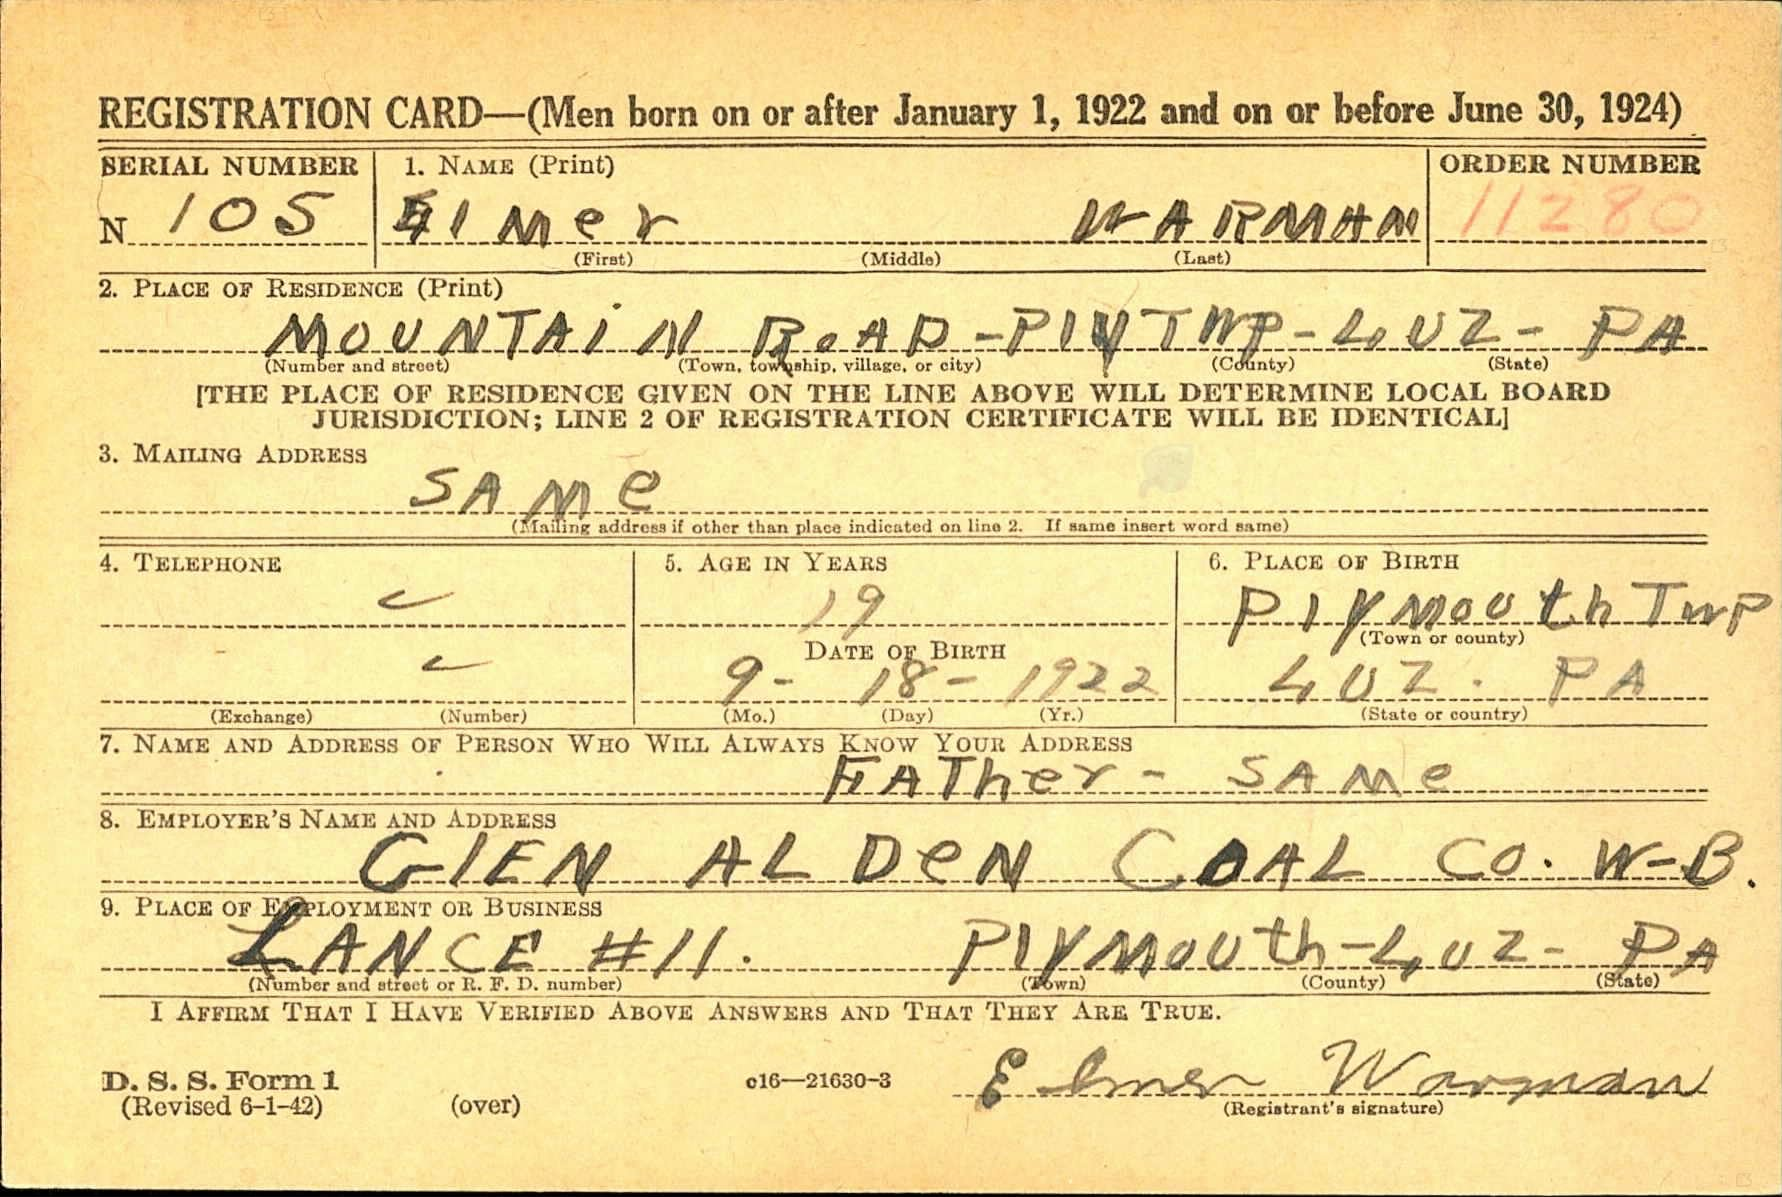 REGISTRATION CARD—(Men born on or after January 1, 1922 and on or before June 30, 1924)
SERIAL NUMBER 1. NAME (Print) ORDER NUMBER
N 105 Elmer WARMAN 11280
(First) (Middle) (Last)
2. PLACE OF RESIDENCE (Print)
MOUNTAiN RoAD - PlY TWP - LUZ - PA
(Number and street) (Town, township, village, or city) (County) (State)
[THE PLACE OF RESIDENCE GIVEN ON THE LINE ABOVE WILL DETERMINE LOCAL BOARD
JURISDICTION; LINE 2 OF REGISTRATION CERTIFICATE WILL BE IDENTICAL]
3. MAILING ADDRESS
SAMe
(Mailing address if other than place indicated on line 2. If same insert word same)
4. TELEPHONE 5. AGE IN YEARS 6. PLACE OF BIRTH
19 PlYMouth Twp
(Town or county)
DATE OF BIRTH
9 - 18 - 1922 LUZ. PA
(Exchange) (Number) (Mo.) (Day) (Yr.) (State or country)
7. NAME AND ADDRESS OF PERSON WHO WILL ALWAYS KNOW YOUR ADDRESS
FATher - SAMe
8. EMPLOYER'S NAME AND ADDRESS
GlEN ALDeN COAL CO. W-B.
9. PLACE OF EMPLOYMENT OR BUSINESS
LANCE #11. PlYMOUth - LUZ - PA
(Number and street or R. F. D. number) (Town) (County) (State)
I AFFIRM THAT I HAVE VERIFIED ABOVE ANSWERS AND THAT THEY ARE TRUE.
D. S. S. Form 1 c16—21630-3 Elmer Warman
(Revised 6-1-42) (over) (Registrant's signature)